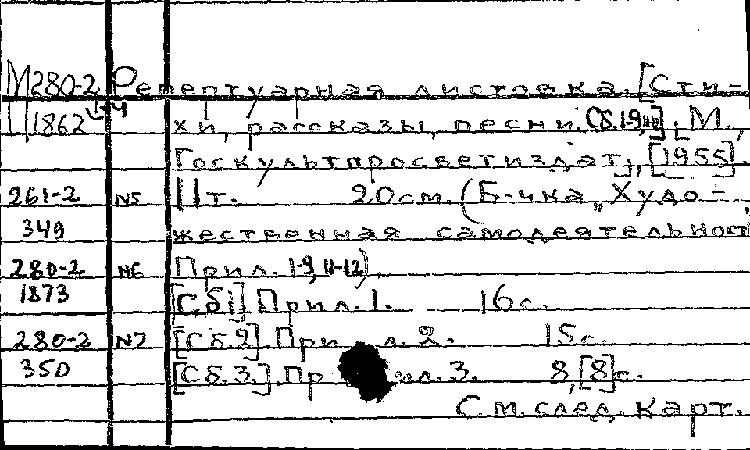 М280-2 Репертуарная листовка. [Сти-
11862 хи, рассказы, песни. Сб. 1-9, ]. М.,
Госкультпросветиздат, [1955]
261-2 N5 11т. 20см. (Б-чка „Худо-
349 жественная самодеятельност
280-2 N6 Прил. 1-9, 11-12).
1873 [Сб1] Прил. 1. 16с.
280-2 N7 [Сб.2]. Прил. 2. 15с.
350 [Сб.3.]. Прил. 3. 8, [8]с.
См. след. карт.